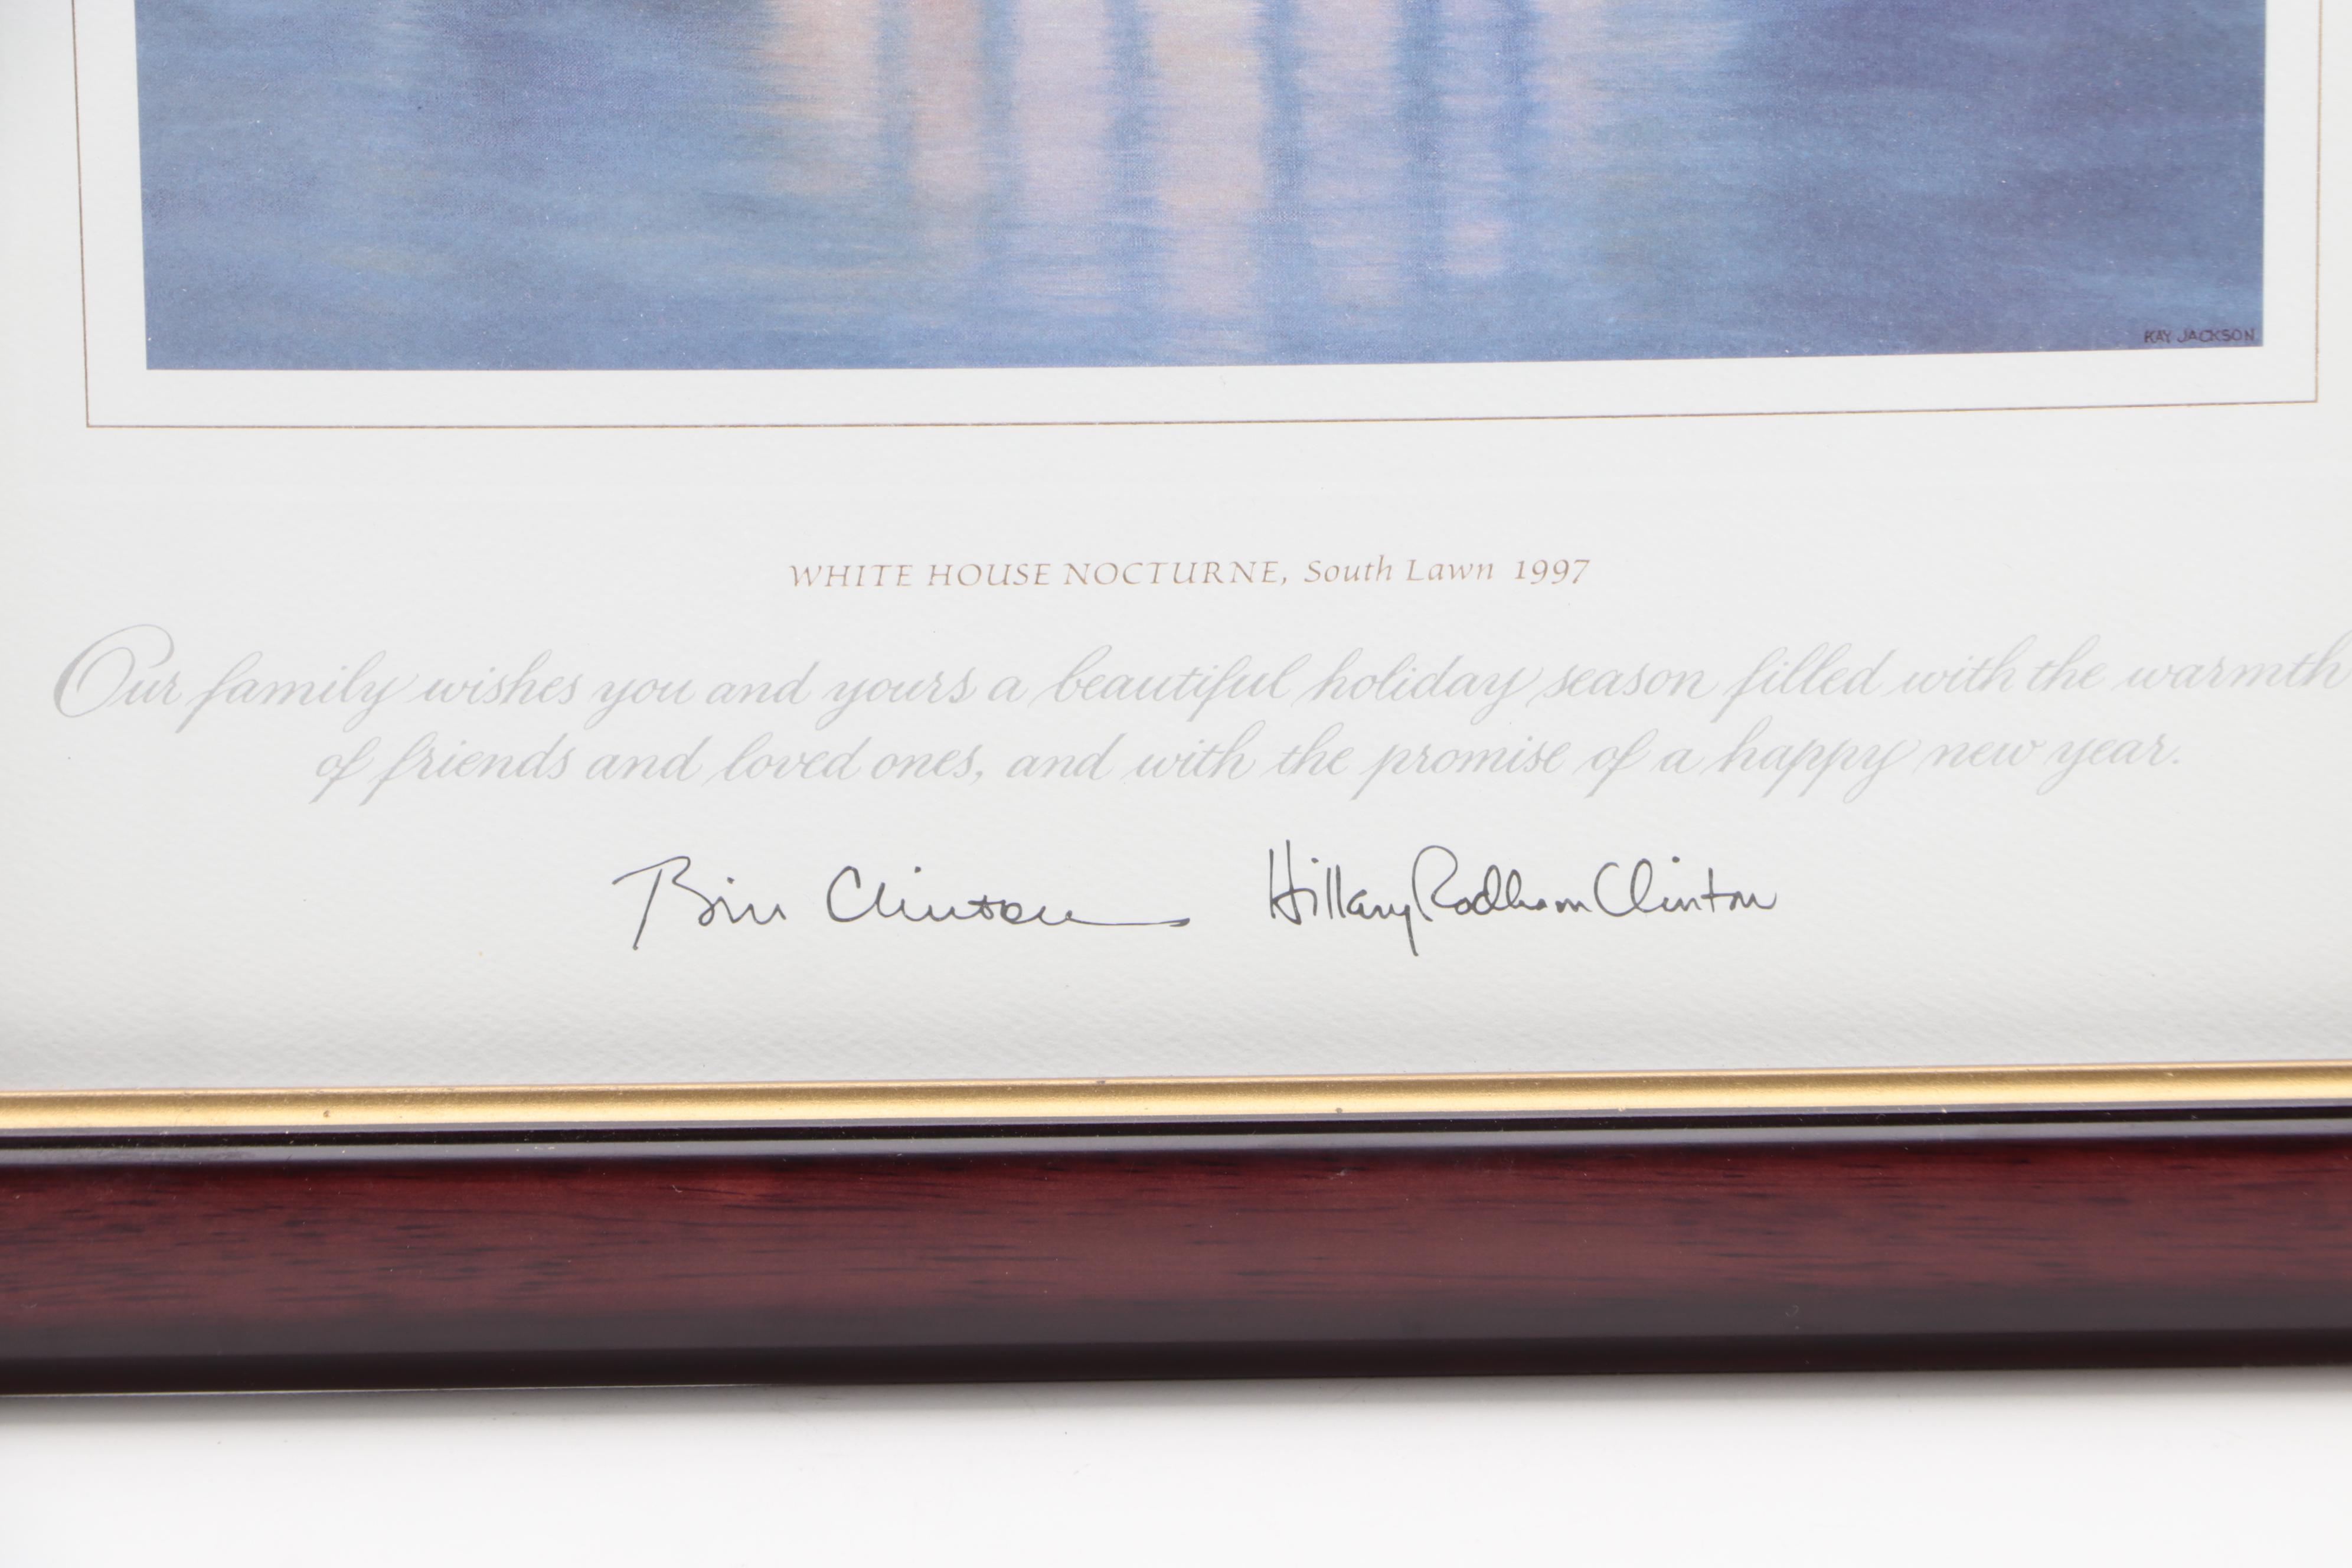 KAY JACKSON
WHITE HOUSE NOCTURNE, South Lawn 1997
Our family wishes you and yours a beautiful holiday season filled with the warmth
of friends and loved ones, and with the promise of a happy new year.
Bill Clinton Hillary Rodham Clinton